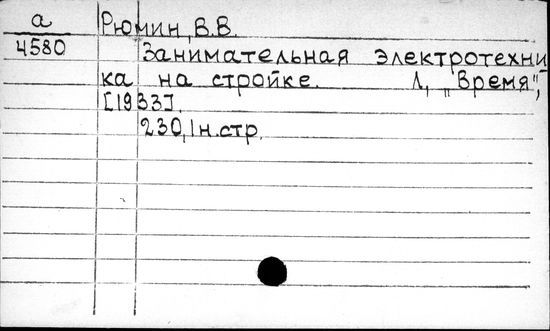 а Рюмин, В.В.
4580 Занимательная электротехни
ка на стройке. Л, "Время",
[1933].
230, 1н.стр.